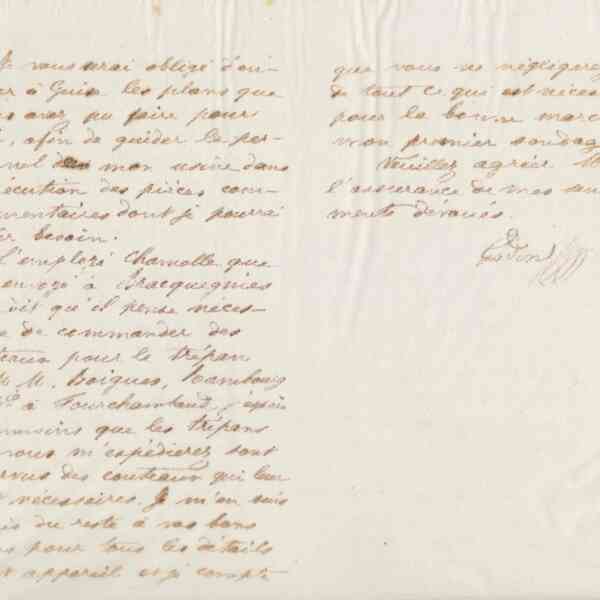 Je vous serai obligé d'en-
er à Guise les plans que
s avez pu faire pour
, afin de guider le per-
nel de mon usine dans
écution des pièces com-
mentaires dont je pourrai
ir besoin.
L'employé Chamolle que
envoyé à Bracquegnies
croit qu'il pense néces-
e de commander des
teaux pour le trépan
M. M. Boigues, Rambourg
à Fourchambaud, j'espère
moins que les trépans
vous m'expédierez sont
rvus des couteaux qui leur
nécessaires. Je m'en suis
is du reste à vos bons
s pour tous les détails
t appareil et je compte
que vous ne négligerez
de tout ce qui est néces
pour la bonne marc
mon premier sondag
Veuillez agréer M
l'assurance de mes sen
ments dévoués.
Godin